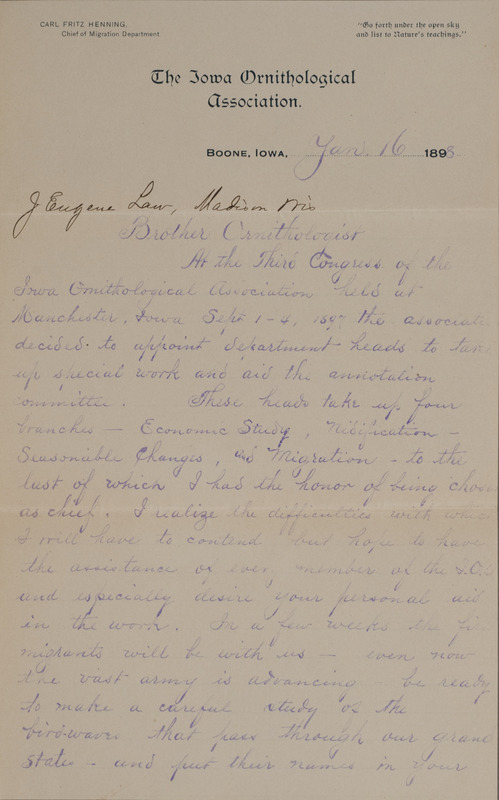 CARL FRITZ HENNING,
Chief of Migration Department
"Go forth under the open sky
and list to Nature's teachings."
The Iowa Ornithological
Association.
BOONE, IOWA, Jan. 16 1898
J Eugene Law, Madison Wis
Brother Ornithologist
At the Third Congress of the
Iowa Ornithological Association held at
Manchester, Iowa Sept 1-4, 1897 the associate
decided to appoint department heads to take
up special work and aid the annotation
committee. These heads take up four
branches — Economic Study, Nidification —
Seasonible Changes, and Migration - to the
last of which I had the honor of being chosen
as chief. I realize the difficulties with which
I will have to contend but hope to have
the assistance of every member of the I.O.A
and especially desire your personal aid
in the work. In a few weeks the
migrants will be with us — even now
the vast army is advancing - be ready
to make a careful study of the
bird-waves that pass through our grand
states — and put their names in your